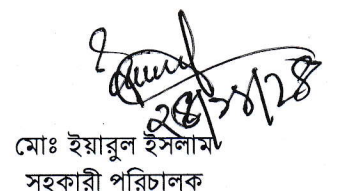 মোঃ ইয়ারুল ইসলাম
সহকারী পরিচালক